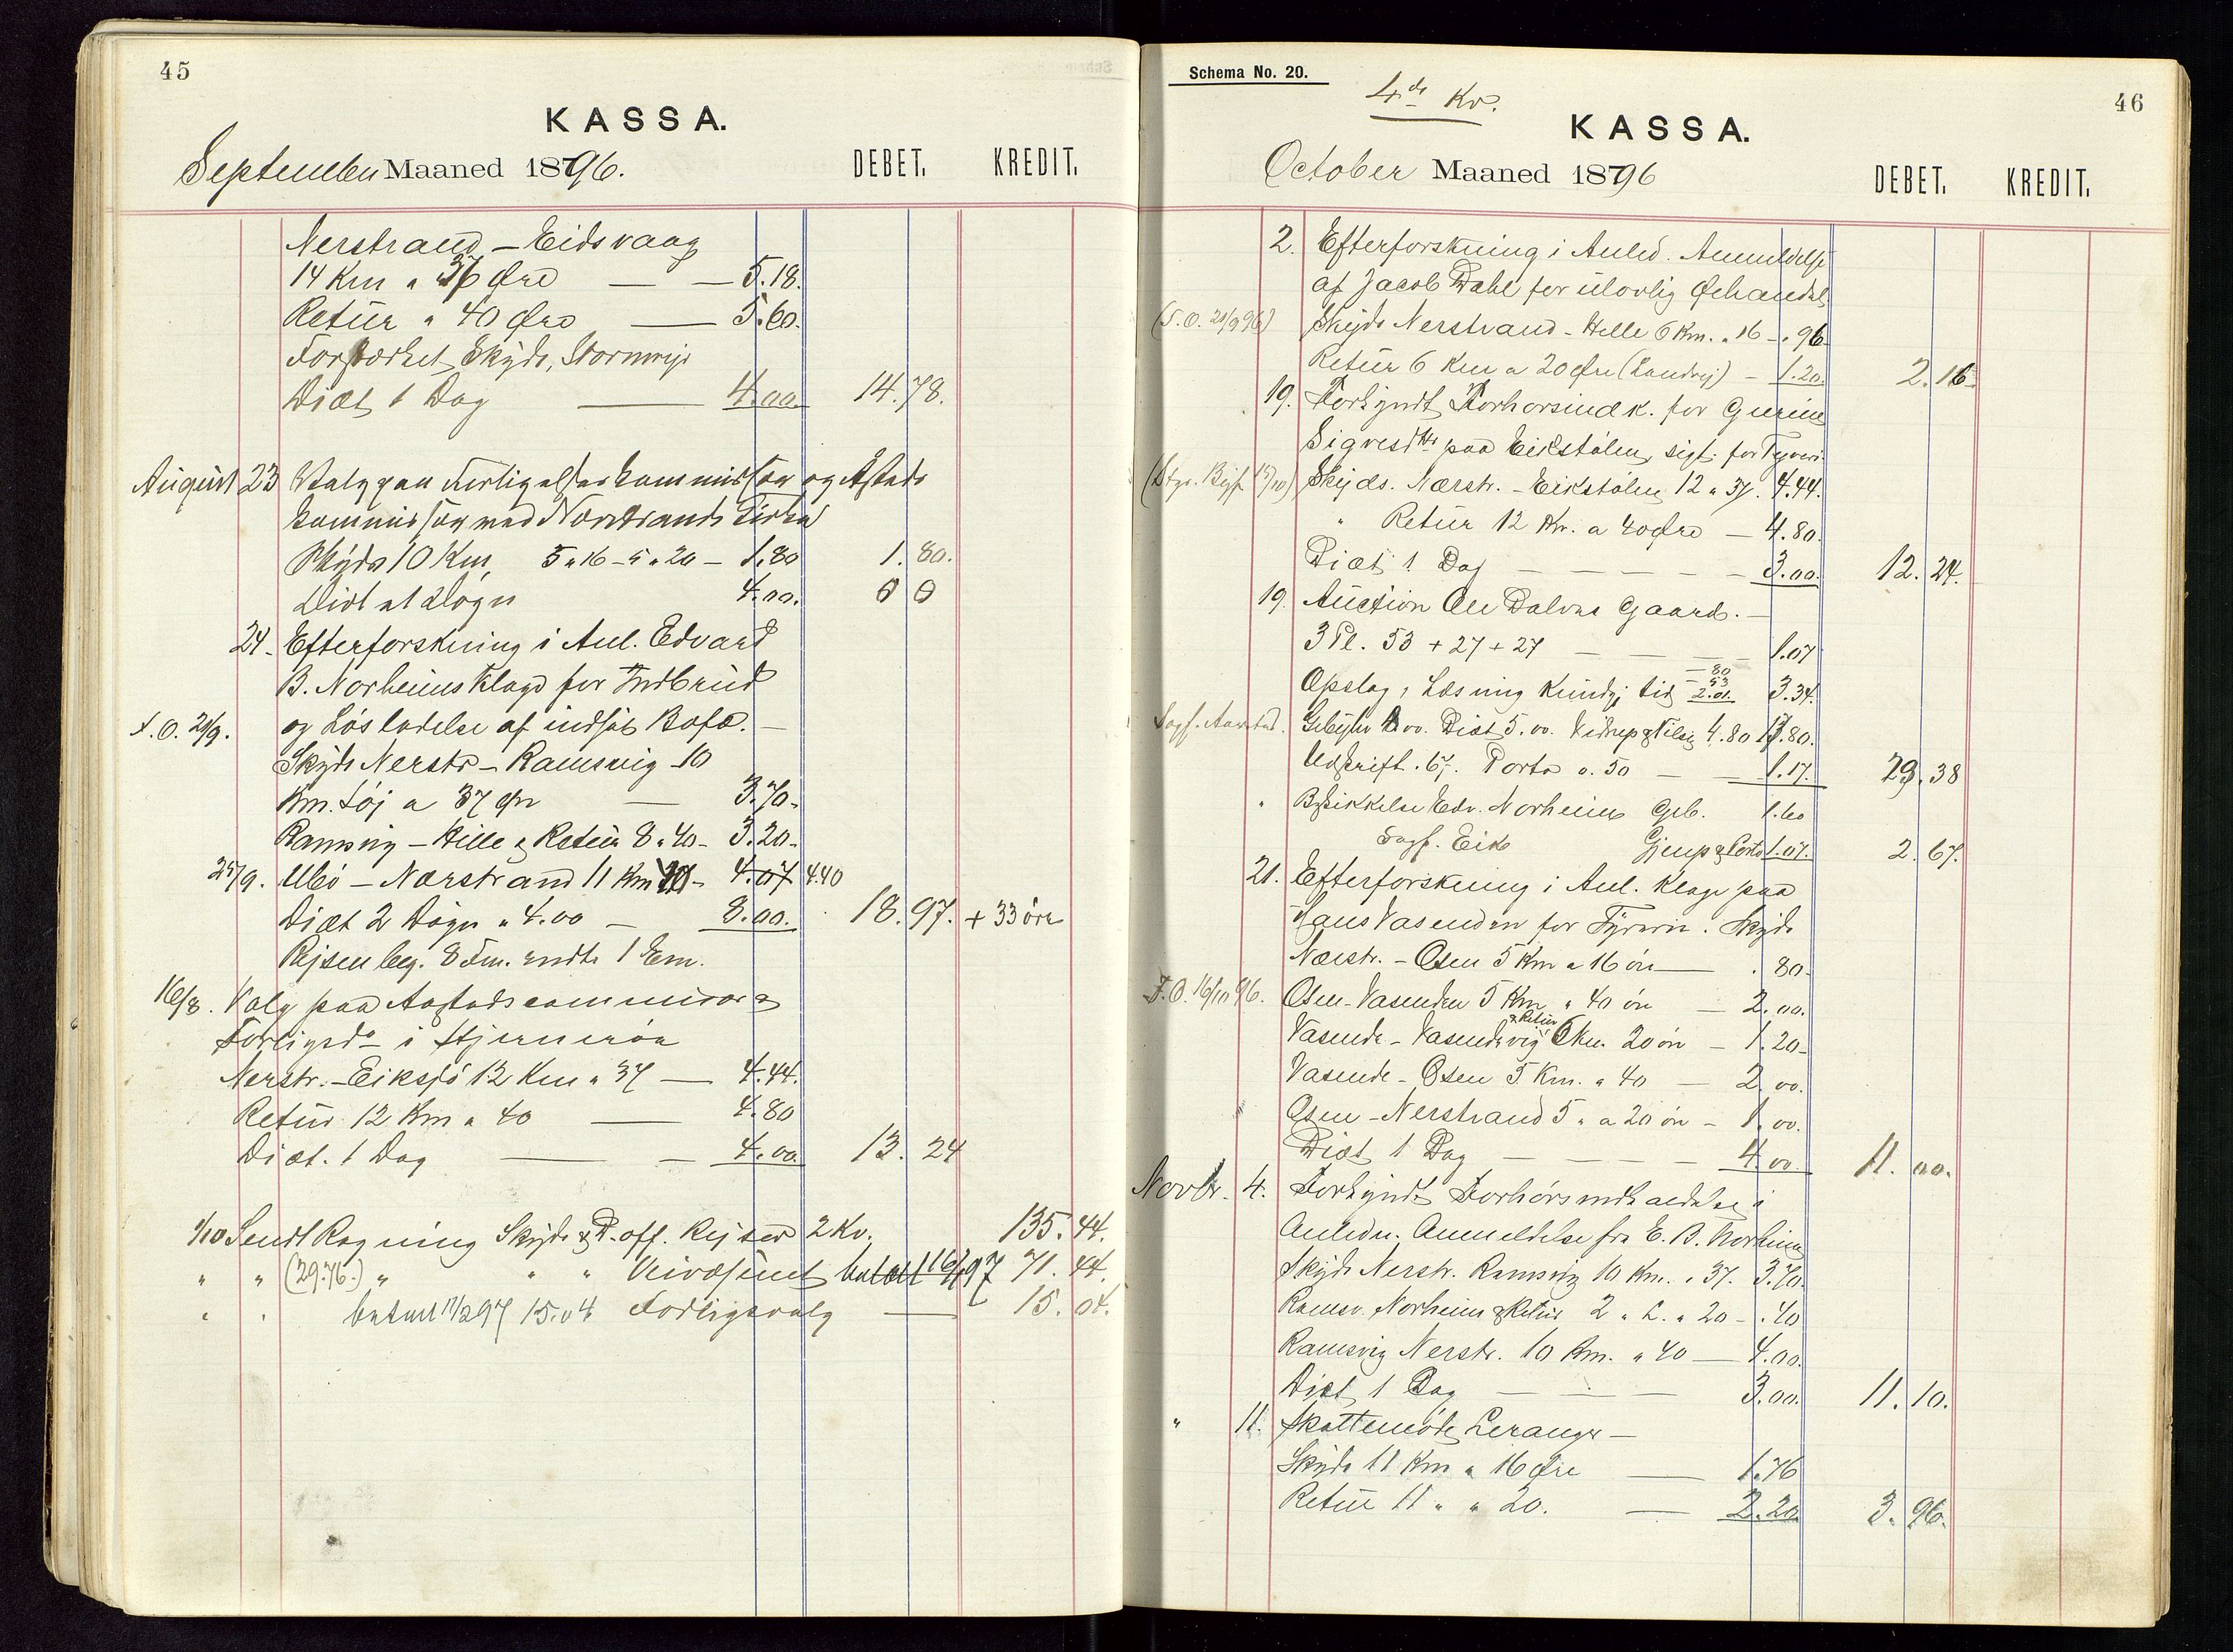 45
KASSA.
September Maaned 1896.
DEBET. KREDIT.
Nerstrand – Eidsvaag
14 Km a 37 Øre — — 5.18.
Retür a 40 Øre — 5.60.
Forstærket Skyds, Stormvejr
Diæt 1 Dag — 4.00. 14.78.
August 23 Valg paa Forligelseskommissær og Astads
kommissær ved Nærstrands Kirke
Skyds 10 Km, 5 a 16 – 5 a 20 – 1.80 1.80.
Diæt et Døgn 4.00. 0 0
24. Efterforskning i Anl. Edvard
B. Norheims Klage for Indbrud
F.O. 29/9. og Lösladelse af indsat Bofæ. —
Skyds Nerstr – Ramsvig – 10
Km. Löj a 37 Øre — 3.70.
Ramsvig – Hille & Retür 8 a 40 – 3.20 –
25/9. Ubö – Nærstrand 11 Km – 4.07 4.40
Diæt 2 Dögn a 4.00 – 8.00. 18.97. + 33 öre
Rejsen beg. 8 Fm. endte 1 Em.
16/8. Valg paa Aastadscommissær &
Forligsdo i Stjerneröe
Nerstr. – Eiksjö 12 Km a 37 — 4.44.
Retür 12 Km a 40 — 4.80
Diæt. 1 Dag — — 4.00. 13.24
1/10 Sendt Regning Skyds & D. off. Rejser 2 Kv. 135.44.
" " (29.76.) " " " betalt 16/1 97 71.44.
" " betalt 17/2 97 15.04 Forligsvalg — 15.04.
Schema No. 20.
4de Kv.
46
KASSA.
October Maaned 1896
DEBET. KREDIT.
2. Efterforskning i Anled. Anmeldelse
af Jacob Dahl for ulovlig Ølhandel
(F.O. 21/9 96) Skyds Nerstrand – Helle 6 Km. a 16 – . 96
Retür 6 Km a 20 Øre (Landvej) – 1.20. 2.16
19. Forkyndt Forhørsindk. for Gurine
Sigvesdtr paa Eikstölen, sigt. for Tyveri
Skyds. Nærstr. – Eikstölen 12 a 37. 4.44.
" Retür 12 Km. a 40 Øre – 4.80.
Diæt 1 Dag — — — 3.00. 12.24.
19. Auction Ole Dalvas Gaard. —
3 Pl. 53 + 27 + 27 — — — 1.07
– 80
– 53
Opslag, Læsning Kundgj. tid 2.01. 3.34.
Sagf. Aarstad. Diæt 5.00. 4.80 13.80.
Udskrift. 67. Porto 0.50 — — 1.17. 29.38
" Beskikkelse Edv. Norheim Geb. 1.60
Sagf. Eike Gjenp & Porto 1.07. 2.67.
21. Efterforskning i Anl. Klage paa
Hans Vasenden for Tyveri. Skyds
Nærstr. – Osen 5 Km a 16 öre — . 80.
F.O. 16/10 96. Osen – Vasenden 5 Km a 40 öre — 2.00.
Vasende – Vasendevig & Retür 6 Km. 20 öre – 1.20 –
Vasende – Osen 5 Km. a 40 — 2.00.
Osen – Nerstrand 5 " a 20 öre – 1.00.
Diæt 1 Dag — — — 4.00. 11.00.
Novbr. 4. Forkyndt Forhörsindkaldelse i
Anledn. Anmeldelse fra E. B. Norheim
Skyds Nerstr. Ramsvig 10 Km. a 37. 3.70.
Ramsv. Norheim & Retür 2 " L. a 20 – . 40
Ramsvig Nerstr. 10 Km. a 40 — 4.00.
Diæt 1 Dag — — — 3.00. 11.10.
" 11. Skattemöde Leranger —
Skyds 11 Km a 16 Øre — 1.76
Retür 11 " a 20. — 2.20. 3.96.